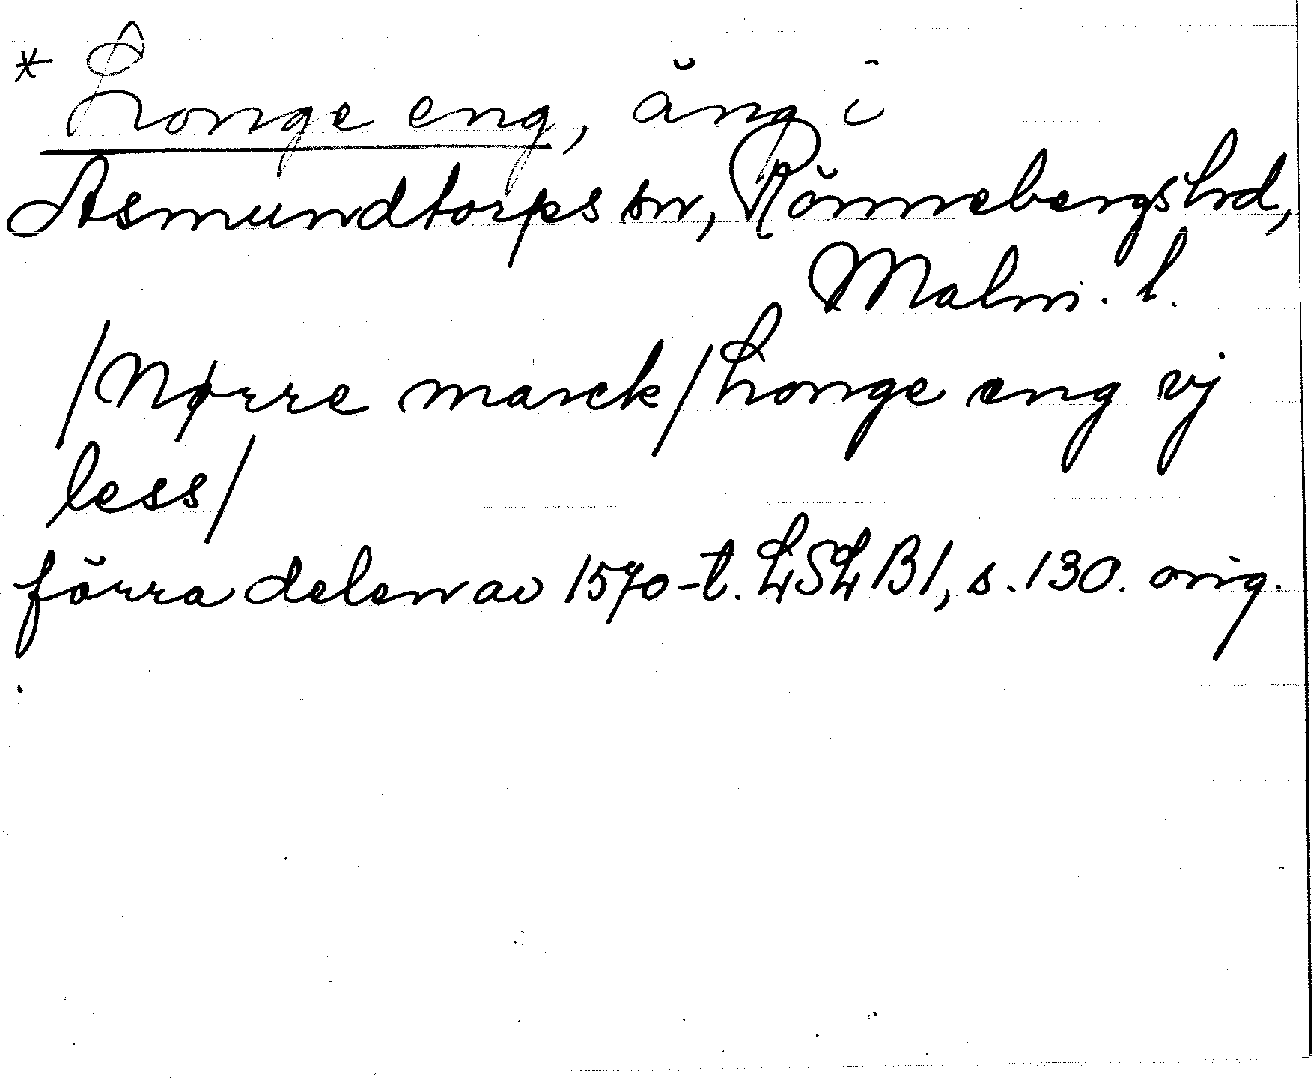 * Longe eng, äng i
Asmundtorps sn, Rönnebergs hd,
Malm. l.
/Nørre marck/ Longe eng vj
less/
förra delen av 1570-t. LSLB1, s. 130. orig.